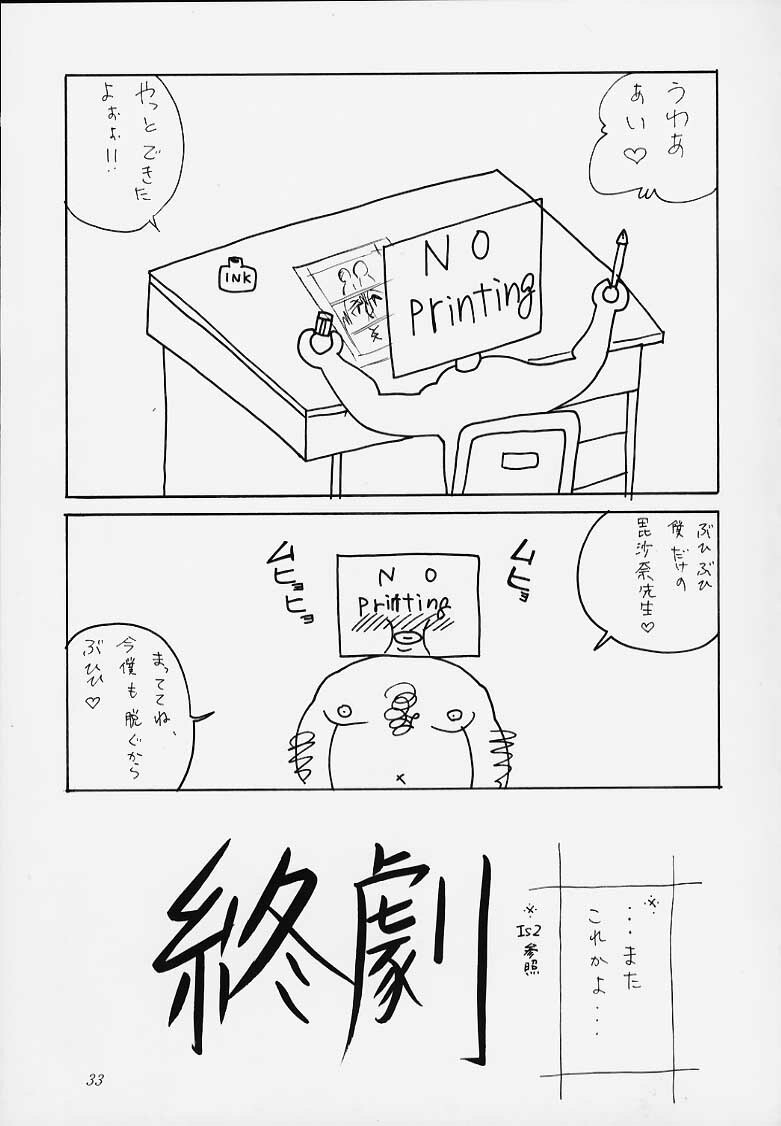 うわあ
あい♡
やっとできた
よぉぉ!!
INK
NO
Printing
ぶひぶひ
僕だけの
毘沙奈先生♡
ムヒョ
ムヒョヒョ
NO
printing
まっててね、
今僕も脱ぐから
ぶひひ♡
終劇
※
…また
これかよ…
※Is2参照
33